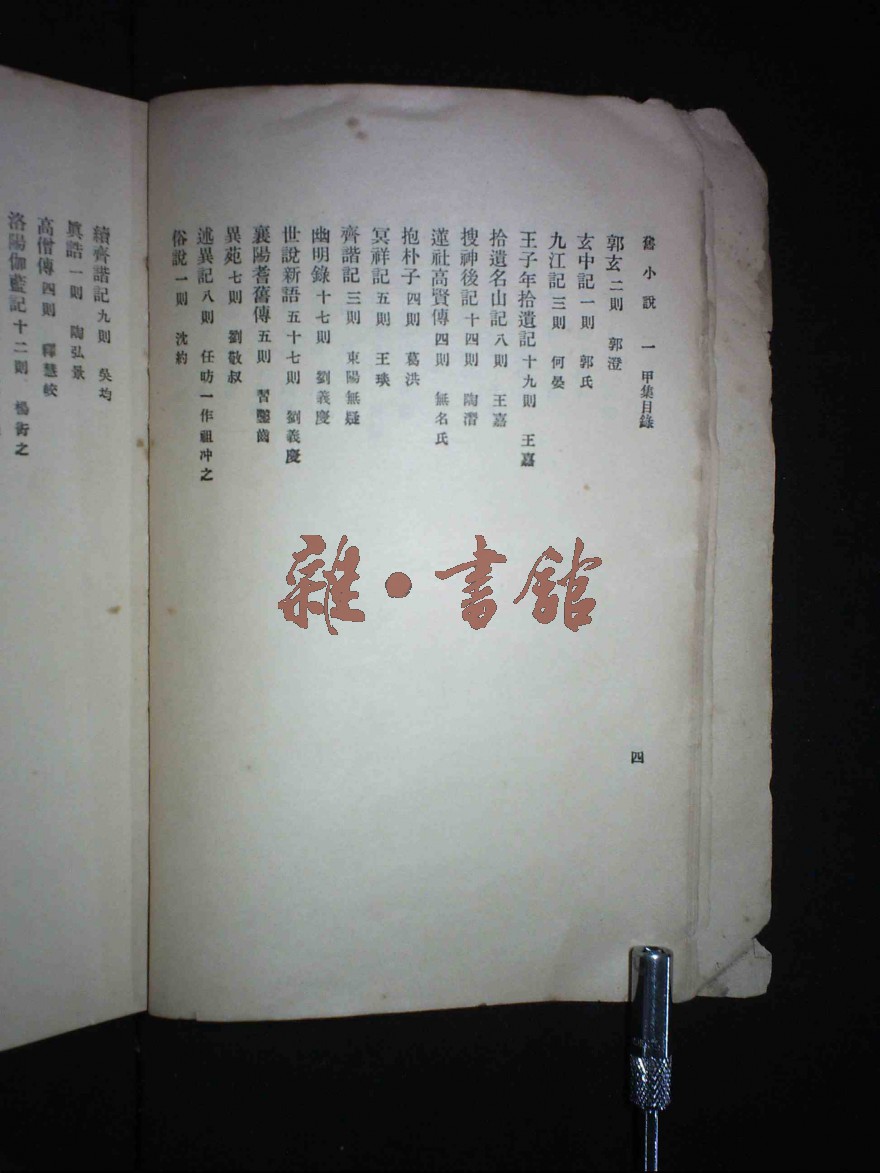 舊小說 一 甲集目錄
郭玄二則 郭澄
玄中記一則 郭氏
九江記三則 何晏
王子年拾遺記十九則 王嘉
拾遺名山記八則 王嘉
搜神後記十四則 陶潛
蓮社高賢傳四則 無名氏
抱朴子四則 葛洪
冥祥記五則 王琰
齊諧記三則 東陽無疑
幽明錄十七則 劉義慶
世說新語五十七則 劉義慶
襄陽耆舊傳五則 習鑿齒
異苑七則 劉敬叔
述異記八則 任昉一作祖冲之
俗說一則 沈約
四
續齊諧記九則 吳均
眞誥一則 陶弘景
高僧傳四則 釋慧皎
洛陽伽藍記十二則 楊衒之
雜·書館